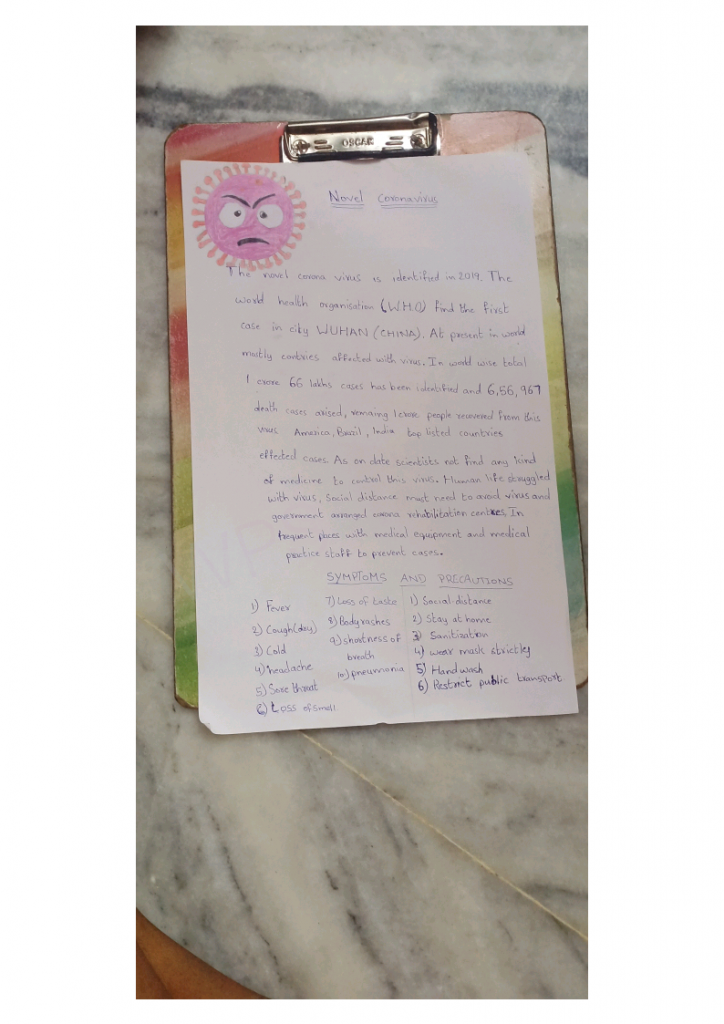 OSCAR
Novel Coronavirus
The novel corona virus is identified in 2019. The
world health organisation (WHO) find the first
case in city WUHAN (CHINA). At present in world
mostly contries affected with virus. In world wise total
1 crore 66 lakhs cases has been identified and 6,56,967
death cases arised, remaing 1crore people recovered from this
virus America, Brazil, India top listed countries
effected cases. As on date scientists not find any kind
of medicine to control this virus. Human life struggled
with virus, Social distance must need to avoid virus and
government arranged corona rehabilitation centres. In
frequent places with medical equipment and medical
practice staff to prevent cases.
SYMPTOMS AND PRECAUTIONS
1) Fever
2) Cough(dry)
3) Cold
4) headache
5) Sore throat
6) Loss of smell
7) Loss of taste
8) Bodyrashes
9) shortness of
breath
10) pneumonia
1) Social distance
2) Stay at home
3) Sanitization
4) wear mask strictly
5) Hand wash
6) Restrict public transport